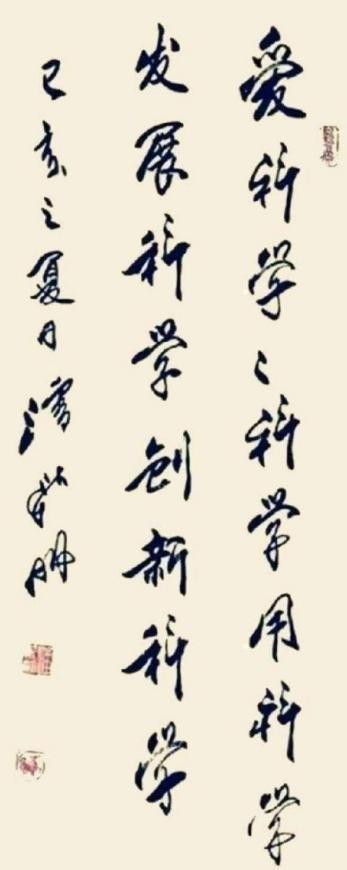 愛科学〻科学用科学
发展科学创新科学
己亥之夏月